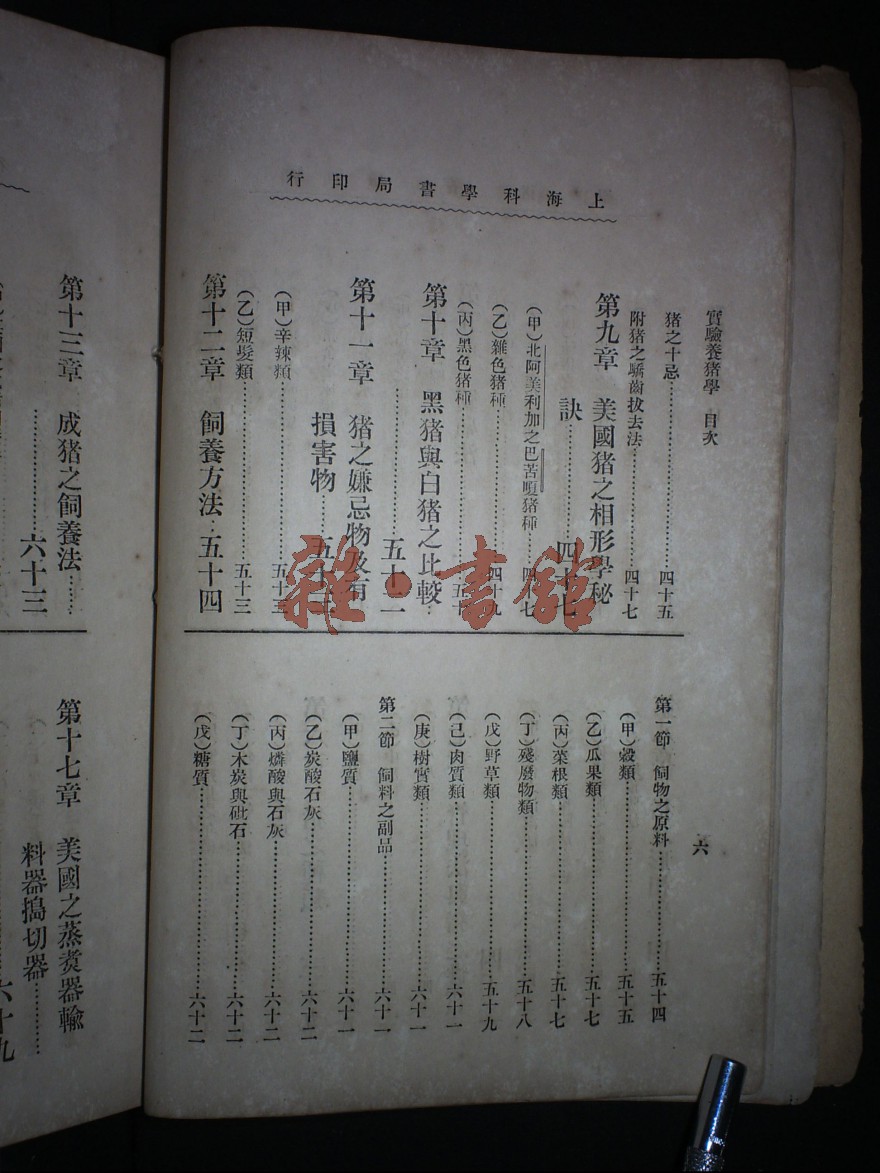 上海科學書局印行
實驗養猪學 目次
六
猪之十忌……四十五
附猪之驕齒拔去法……四十七
第九章 美國猪之相形學秘
訣……四十七
(甲)北阿美利加之巴苦嗄猪種……四十七
(乙)雜色猪種……四十九
(丙)黑色猪種……五十
第十章 黑猪與白猪之比較…
……五十二
第十一章 猪之嫌忌物及有
損害物……五十三
(甲)辛辣類……五十三
(乙)短髮類……五十三
第十二章 飼養方法…五十四
第一節 飼物之原料……五十四
(甲)穀類……五十五
(乙)瓜果類……五十七
(丙)菜根類……五十七
(丁)殘廢物類……五十八
(戊)野草類……五十九
(己)肉質類……六十一
(庚)樹實類……六十一
第二節 飼料之副品……六十一
(甲)鹽質……六十一
(乙)炭酸石灰……六十二
(丙)燐酸與石灰……六十二
(丁)木炭與砒石……六十二
(戊)糖質……六十二
第十三章 成猪之飼養法……
……六十三
第十七章 美國之蒸煑器輸
料器搗切器……
六十九
雜·書館